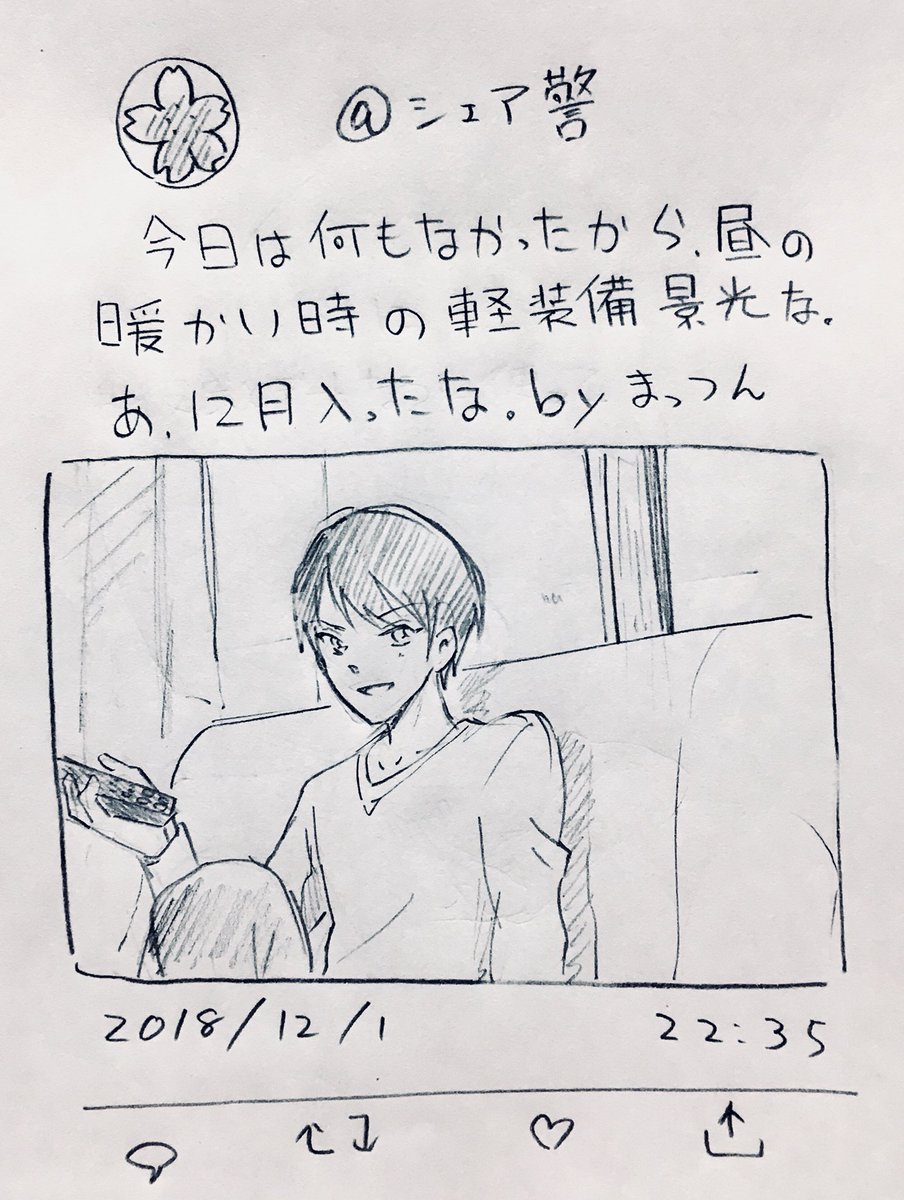 @シェア警
今日は何もなかったから、昼の
暖かい時の軽装備景光な。
あ、12月入ったな。byまっつん
2018/12/1
22:35